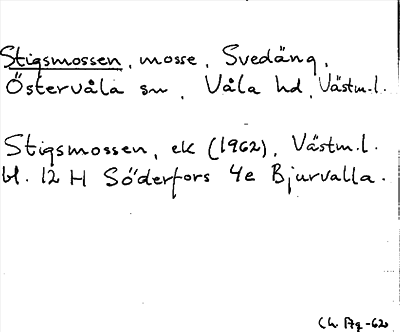 Stigsmossen, mosse, Svedäng,
Östervåla sn, Våla hd, Västm.l.
Stigsmossen, ek (1962), Västm.l.
bl. 12 H Söderfors 4e Bjurvalla.
-62